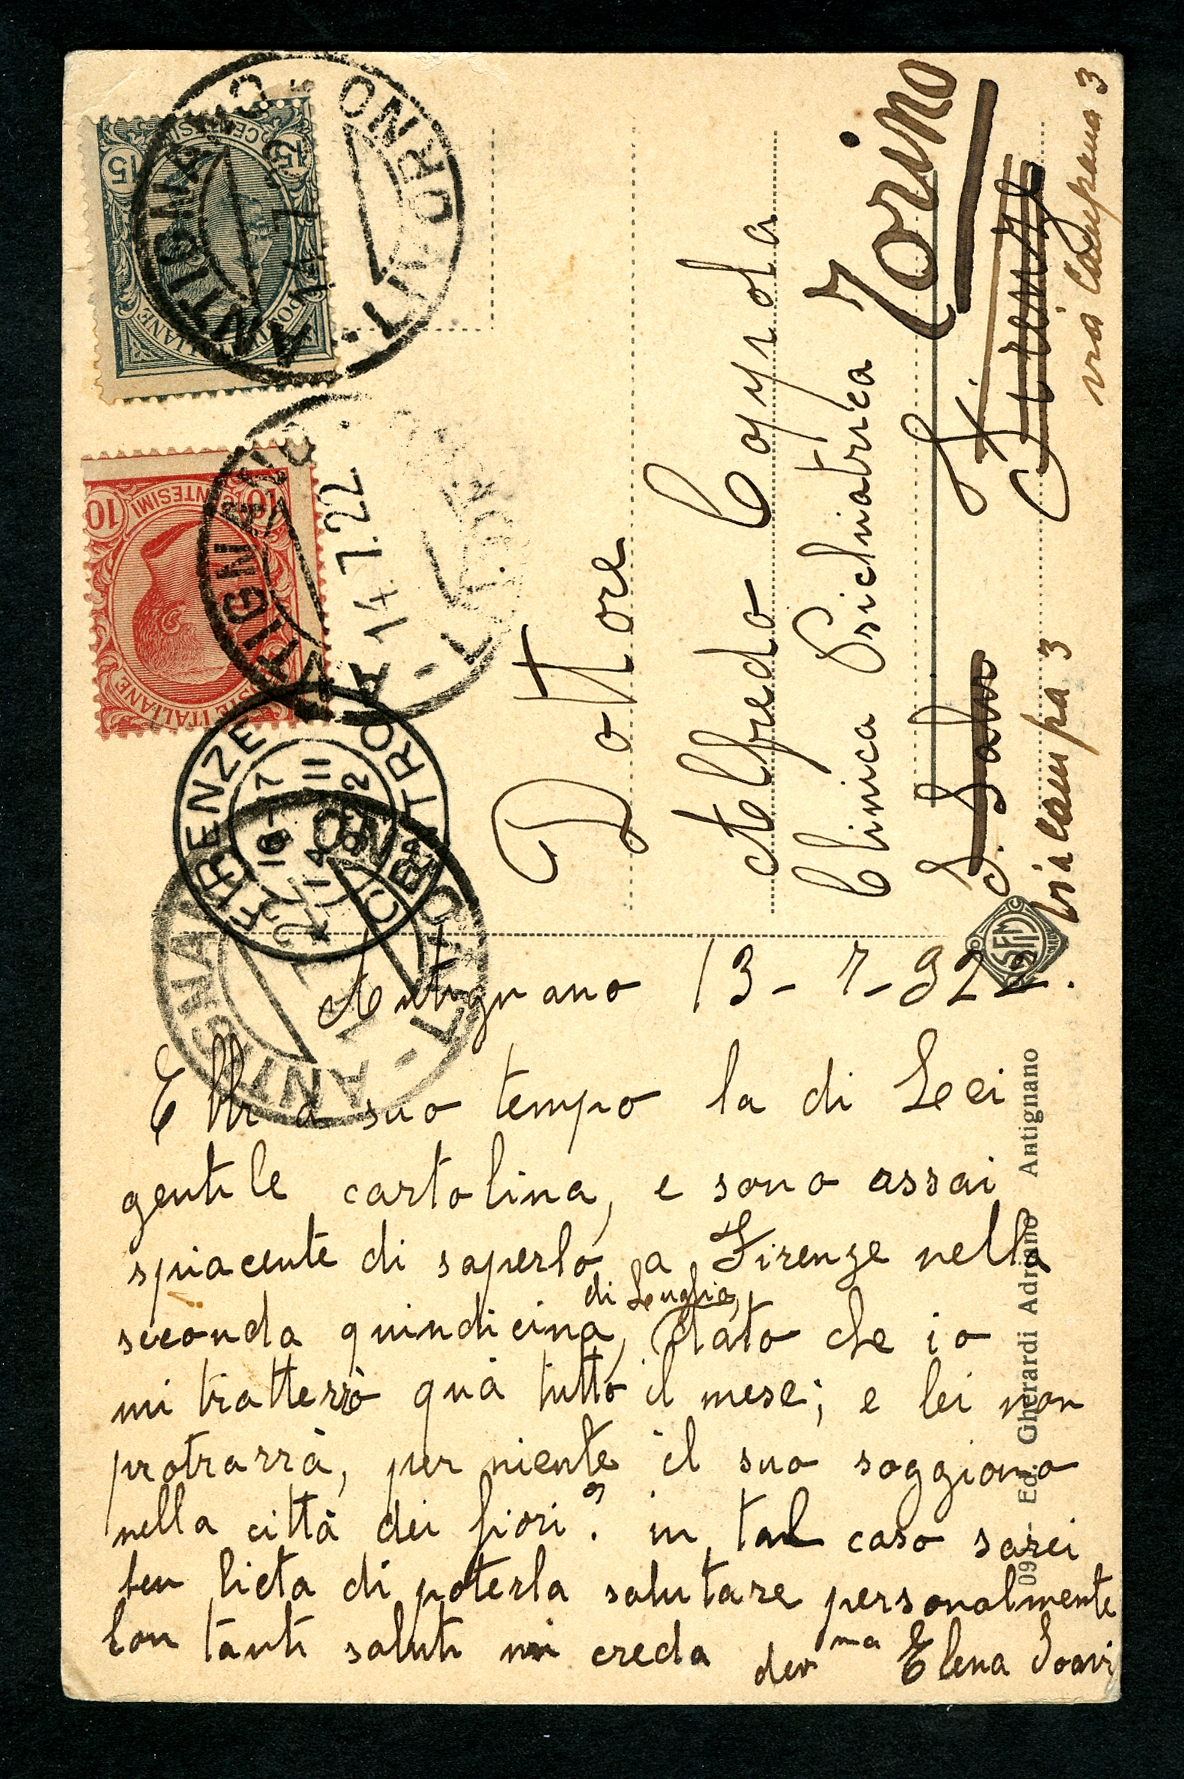 15 CENTESIMI 15
POSTE ITALIANE
10 CENTESIMI 10
POSTE ITALIANE
ANTIGNANO
LIVORNO
ANTIGNANO
14 7.22
FIRENZE
CENTRO
Dottore
Alfredo Coppola
Clinica Psichiatrica Torino
S. Salvi Firenze
via Campana 3
via Campana 3
SFM
Antignano 13-7-922.
Ebbi a suo tempo la di Lei
gentile cartolina, e sono assai
spiacente di saperlo a Firenze nella
seconda quindicina, di Luglio, dato che io
mi tratterrò quà tutto il mese; e lei non
protrarrà, per niente il suo soggiorno
nella città dei fiori? in tal caso sarei
ben lieta di poterla salutare personalmente
Con tanti saluti mi creda dev ma Elena Soavi
Ed. Gherardi Adriano Antignano